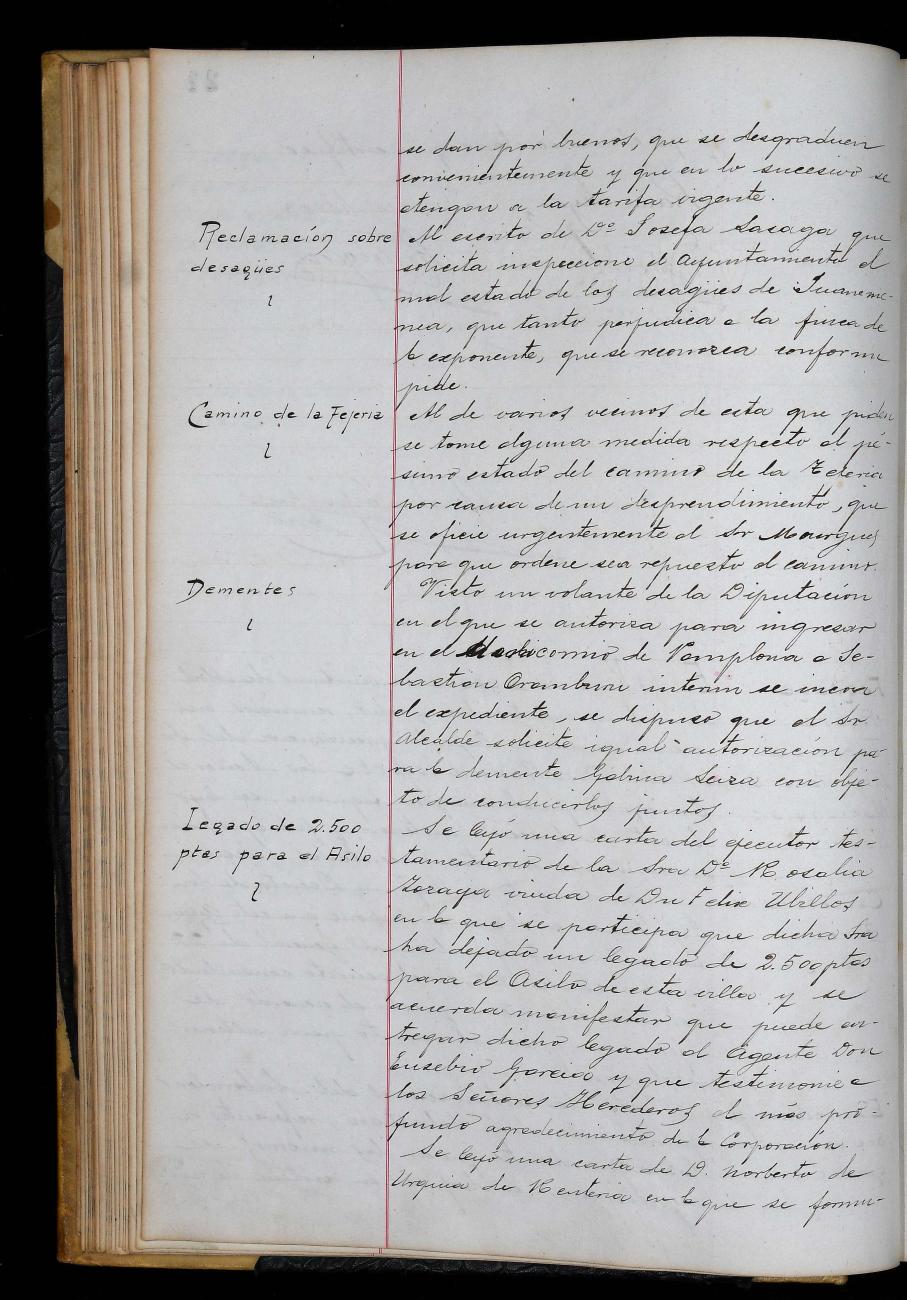 se dan por buenos, que se desgraduen
convenientemente y que en lo sucesivo se
atengan a la tarifa vigente.
Reclamación sobre
desagües
Al escrito de Dª Josefa Sasaga que
solicita inspeccione el Ayuntamiento el
mal estado de los desagües de Juaneme-
nea, que tanto perjudica a la finca de
la exponente, que se reconozca conforme
pide.
Camino de la Tejeria
Al de varios vecinos de esta que piden
se tome alguna medida respecto al pé-
simo estado del camino de la Tejeria
por causa de un desprendimiento, que
se oficie urgentemente al Sr Mourgues
para que ordene sea repuesto el camino.
Dementes
Visto un volante de la Diputación
en el que se autoriza para ingresar
en el Manicomio de Pamplona a Se-
bastian Oramburu interin se incoa
el expediente, se dispuso que el Sr
Alcalde solicite igual autorización pa-
ra la demente Gabina Seiza con obje-
to de conducirlos juntos.
Legado de 2.500
ptas para el Asilo
Se leyó una carta del ejecutor tes-
tamentario de la Sra Dª Rosalia
Zozaya viuda de Dn Felix Ubillos
en la que se participa que dicha Sra
ha dejado un legado de 2.500 ptas
para el Asilo de esta villa y se
acuerda manifestar que puede en-
tregar dicho legado al Agente Don
Eusebio Garcia y que testimonie a
los Señores Herederos el más pro-
fundo agradecimiento de la Corporación.
Se leyó una carta de D. Norberto de
Urquia de Renteria en la que se formu-